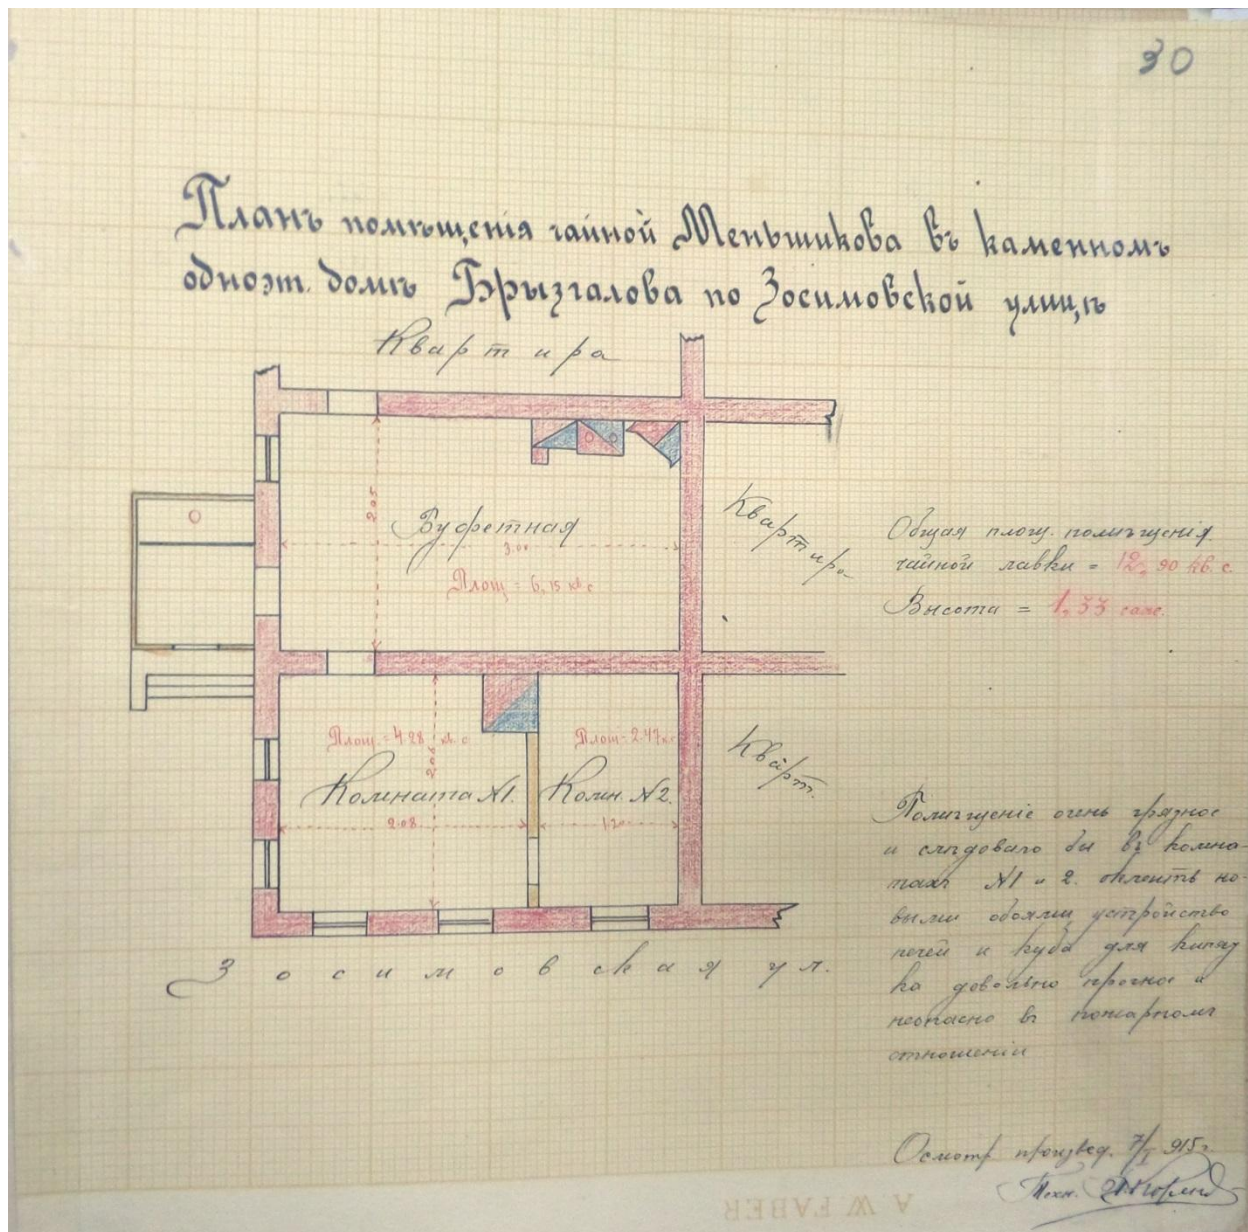 30
Планъ помѣщенія чайной Меньшикова въ каменномъ
одноэт. домѣ Брызгалова по Зосимовской улицѣ
Квартира
2.05
Буфетная
3.00
Площ = 6,15 кв. с
Квартира
Общая площ. помѣщенія
чайной лавки = 12,90 кв. с.
Высота = 1,33 саж.
Площ = 4.28 кв. с
Площ = 2.47 кв
2.06
Комната №1.
Комн. №2.
2.08
1.20
Кварт.
Помѣщеніе очень грязное
и слѣдовало бы въ комна-
тахъ №1 и 2. оклеить но-
выми обоями, устройство
печей и куба для кипят
ка довольно прочное и
неопасно въ пожарномъ
отношеніи
Зосимовская ул.
Осмотр произвед. 7/I 915 г
Техн.
A.W. FABER